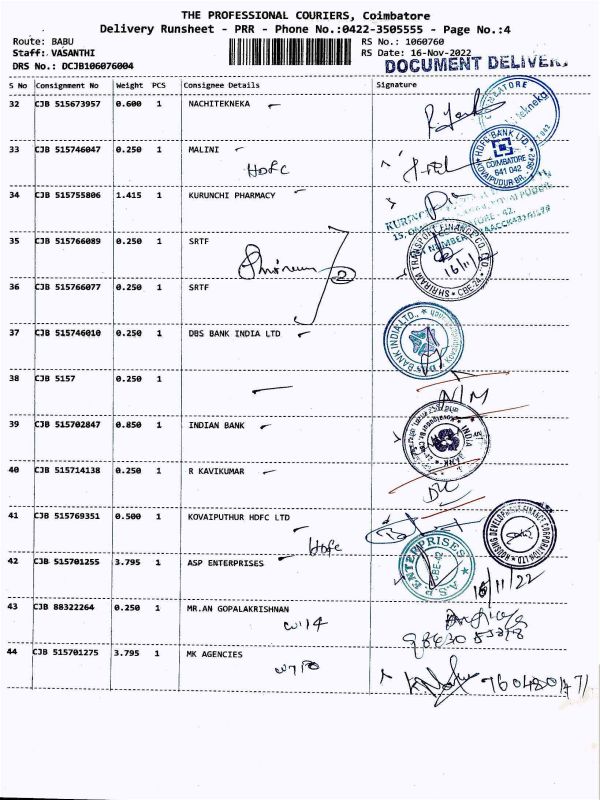 THE PROFESSIONAL COURIERS, Coimbatore
Delivery Runsheet - PRR - Phone No.:0422-3505555 - Page No.:4
Route: BABU RS No.: 1060760
Staff: VASANTHI RS Date: 16-Nov-2022
DRS No.: DCJB106076004 DOCUMENT DELIVERY
S No Consignment No Weight PCS Consignee Details Signature
32 CJB 515673957 0.600 1 NACHITEKNEKA
COIMBATORE
33 CJB 515746047 0.250 1 MALINI
HDFC
HDFC BANK LTD
COIMBATORE
641 042
KOVAIPUDUR BR.
34 CJB 515755806 1.415 1 KURUNCHI PHARMACY
35 CJB 515766089 0.250 1 SRTF
2
SHRIRAM TRANSPORT FINANCE CO. LTD. CBE-24
16/11/
36 CJB 515766077 0.250 1 SRTF
37 CJB 515746010 0.250 1 DBS BANK INDIA LTD
DBS BANK INDIA LTD.,
38 CJB 5157 0.250 1
N/M
39 CJB 515702847 0.850 1 INDIAN BANK
INDIAN BANK
40 CJB 515714138 0.250 1 R KAVIKUMAR
DC
41 CJB 515769351 0.500 1 KOVAIPUTHUR HDFC LTD
Hdfc
HOUSING DEVELOPMENT FINANCE CORPORATION LTD
42 CJB 515701255 3.795 1 ASP ENTERPRISES
A.S.P ENTERPRISES
CBE-42
16/11/22
43 CJB 88322264 0.250 1 MR.AN GOPALAKRISHNAN
44 CJB 515701275 3.795 1 MK AGENCIES